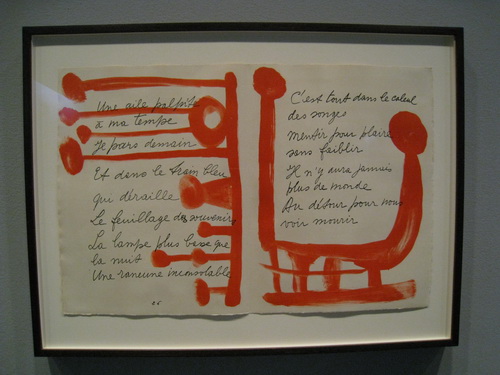 Une aile palpite
à ma tempe
Je pars demain
Et dans le train bleu
qui déraille
Le feuillage des souvenirs
La lampe plus basse que
la nuit
Une rancune inconsolable
C'est tout dans le calcul
des songes
Mentir pour plaire
sans faiblir
Il n'y aura jamais
plus de monde
Au détour pour nous
voir mourir